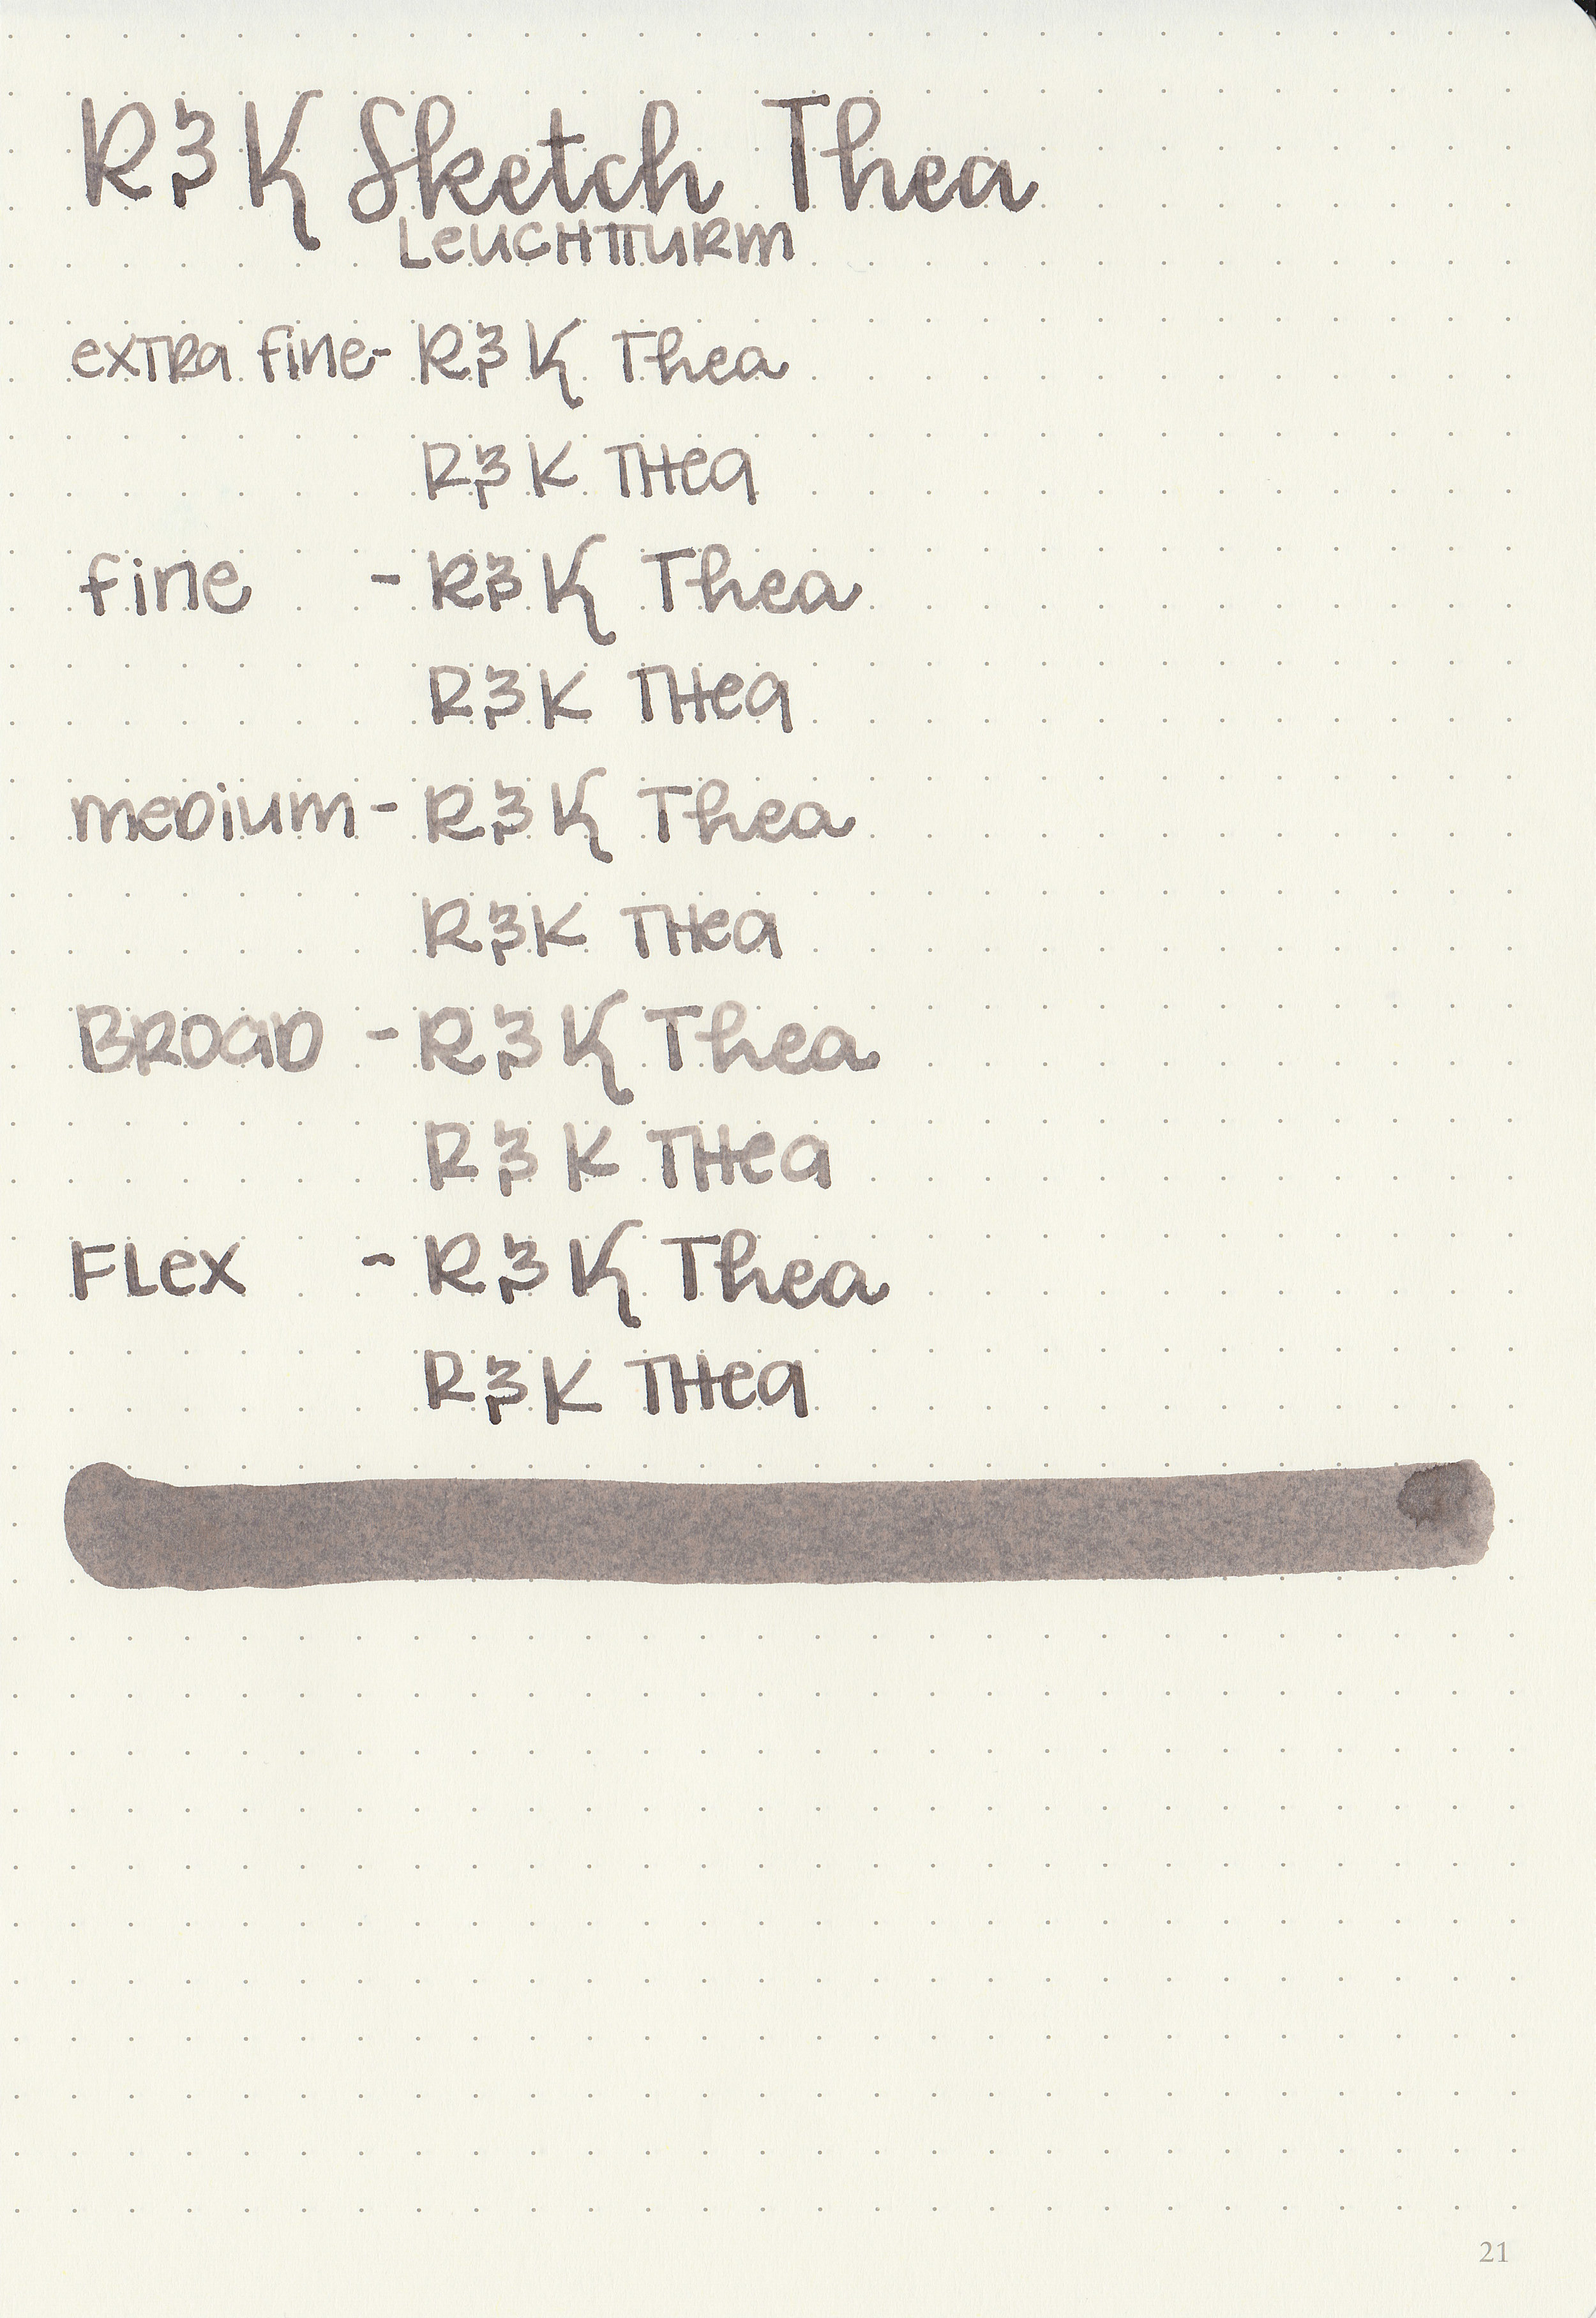 R & K Sketch Thea
Leuchtturm
extra fine - R & K Thea
R & K Thea
fine - R & K Thea
R & K Thea
medium - R & K Thea
R & K Thea
Broad - R & K Thea
R & K Thea
Flex - R & K Thea
R & K Thea
21